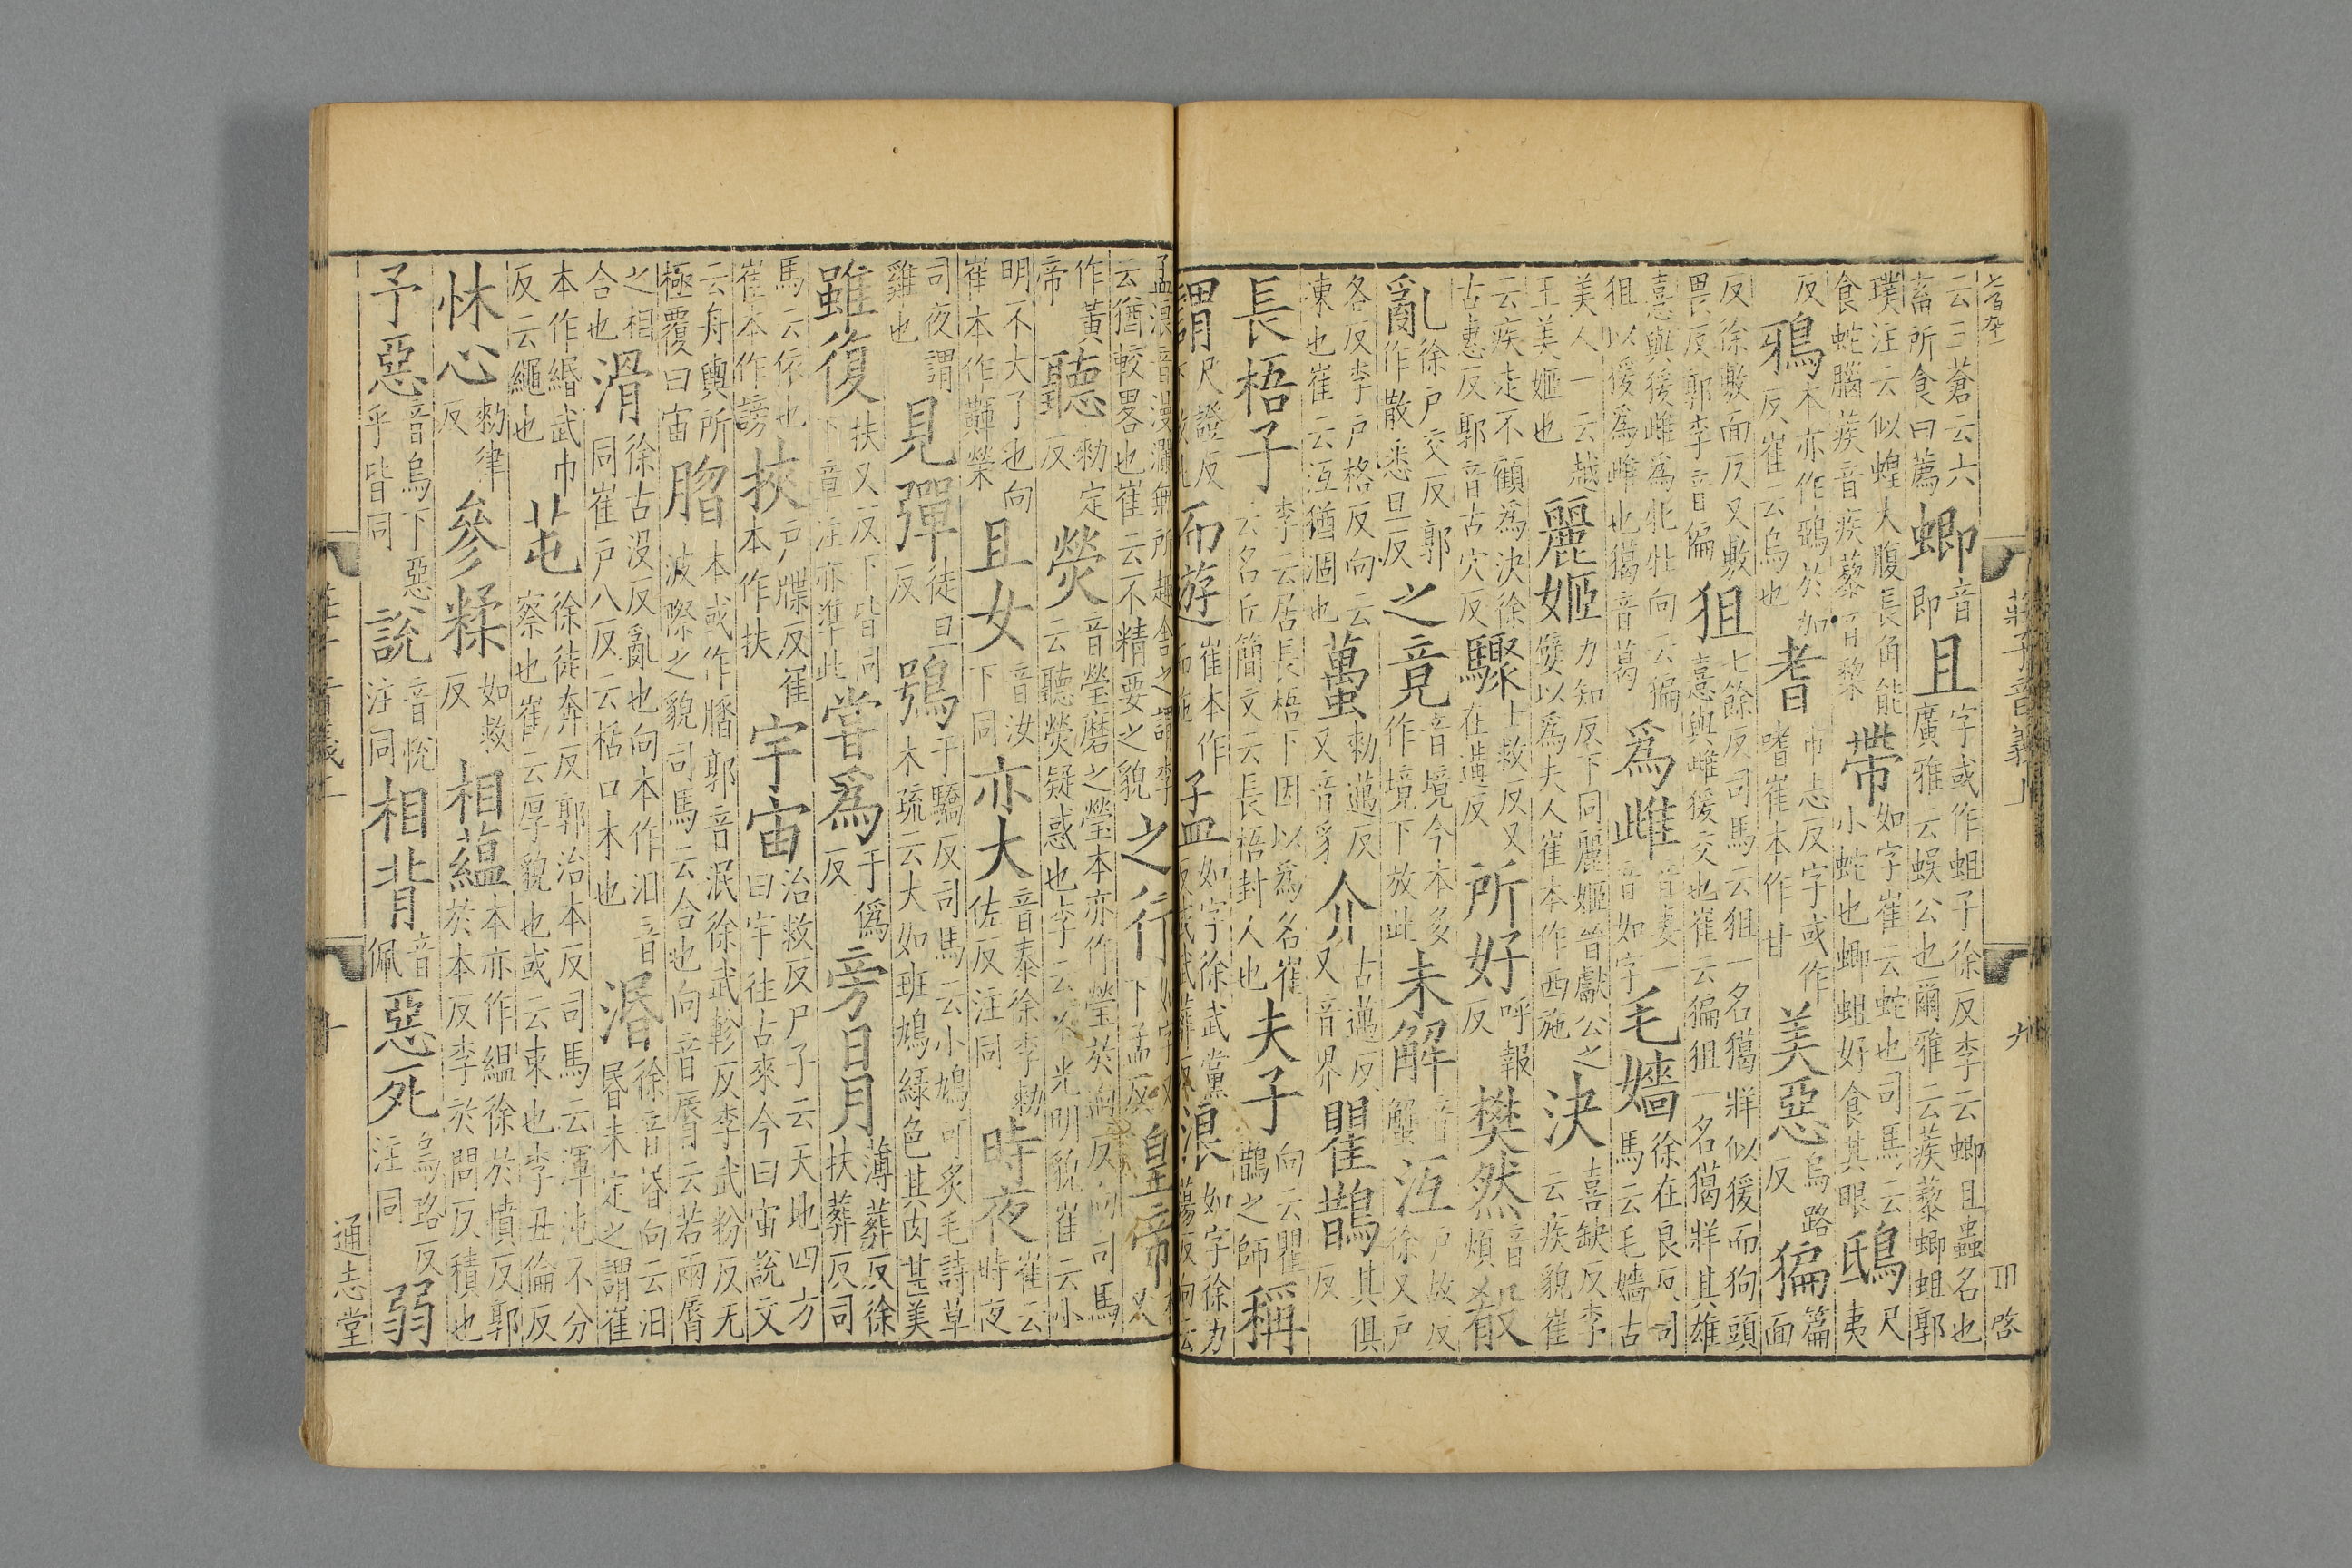 莊子音義上 九
云三蒼云六畜所食曰薦 蝍音即 且字或作蛆子徐反李云蝍且蟲名也廣雅云蜈公也爾雅云蒺藜蝍蛆郭
璞注云似蝗大腹長角能食蛇腦蒺音疾藜音黎 帶如字崔云蛇也司馬云小蛇也蝍蛆好食其眼 鴟尺夷
反 鴉本亦作鵶於加反崔云烏也 耆市志反字或作嗜崔本作甘 美惡烏路反 猵篇面
反徐敷面反又敷畏反郭李音偏 狙七餘反司馬云狙一名獦牂似猨而狗頭憙與雌猨交也崔云猵狙一名獦牂其雄
憙與猨雌為牝牡向云猵狙以猨爲雌也獦音葛 爲雌音妻一音如字 毛嬙徐在良反司馬云毛嬙古
美人一云越王美姬也 麗姬力知反下同麗姬晉獻公之嬖以爲夫人崔本作西施 決喜缺反李云疾貌崔
云疾走不顧爲決徐古惠反郭音古穴反 驟士救反又在遘反 所好呼報反 樊然音煩 殽
亂徐戶交反郭作散悉旦反 之竟音境今本多作境下放此 未解音蟹 沍戶故反徐又戶
各反李戶格反向云凍也崔云沍猶涸也 蠆勑邁反又音豸 介古邁反又音界 瞿鵲其俱反
長梧子李云居長梧下因以爲名崔云名丘簡文云長梧封人也 夫子向云瞿鵲之師 稱
謂尺證反下放此 而遊崔本作而施 孟如字徐武黨反或武葬反 浪如字徐力蕩反向云
孟浪音漫瀾無所趣舍之謂李云猶較畧也崔云不精要之貌 之行如字又下孟反 皇帝本又
作黃帝 聽勑定反 熒音瑩磨之瑩本亦作瑩於迥反向司馬云聽熒疑惑也李云不光明貌崔云小
明不大了也向崔本作䡰榮 且女音汝下同 亦大音泰徐李勑佐反注同 時夜崔云時夜
司夜謂雞也 見彈徒旦反 鴞于驕反司馬云小鳩可炙毛詩草木疏云大如班鳩綠色其肉甚美
雖復扶又反下皆同下章注亦準此 嘗爲于僞反 旁日月薄葬反徐扶葬反司
馬云依也崔本作謗 挾戶牒反崔本作扶 宇宙治救反尸子云天地四方曰宇往古來今曰宙說文
云舟輿所極覆曰宙 脗本或作䐇郭音泯徐武軫反李武粉反无波際之貌司馬云合也向音脣云若兩脣
之相合也 滑徐古沒反亂也向本作汨音同崔戶八反云栝口木也 涽徐音昏向云汨昬未定之謂崔
本作緡武巾反云繩也 芚徐徒奔反郭治本反司馬云渾沌不分察也崔云厚貌也或云束也李丑倫反
怵心勑律反 參糅如救反 相蘊本亦作縕徐於憤反郭於本反李於問反積也
予惡音烏下惡乎皆同 說音悅注同 相背音佩 惡死烏路反注同 弱
十 通志堂